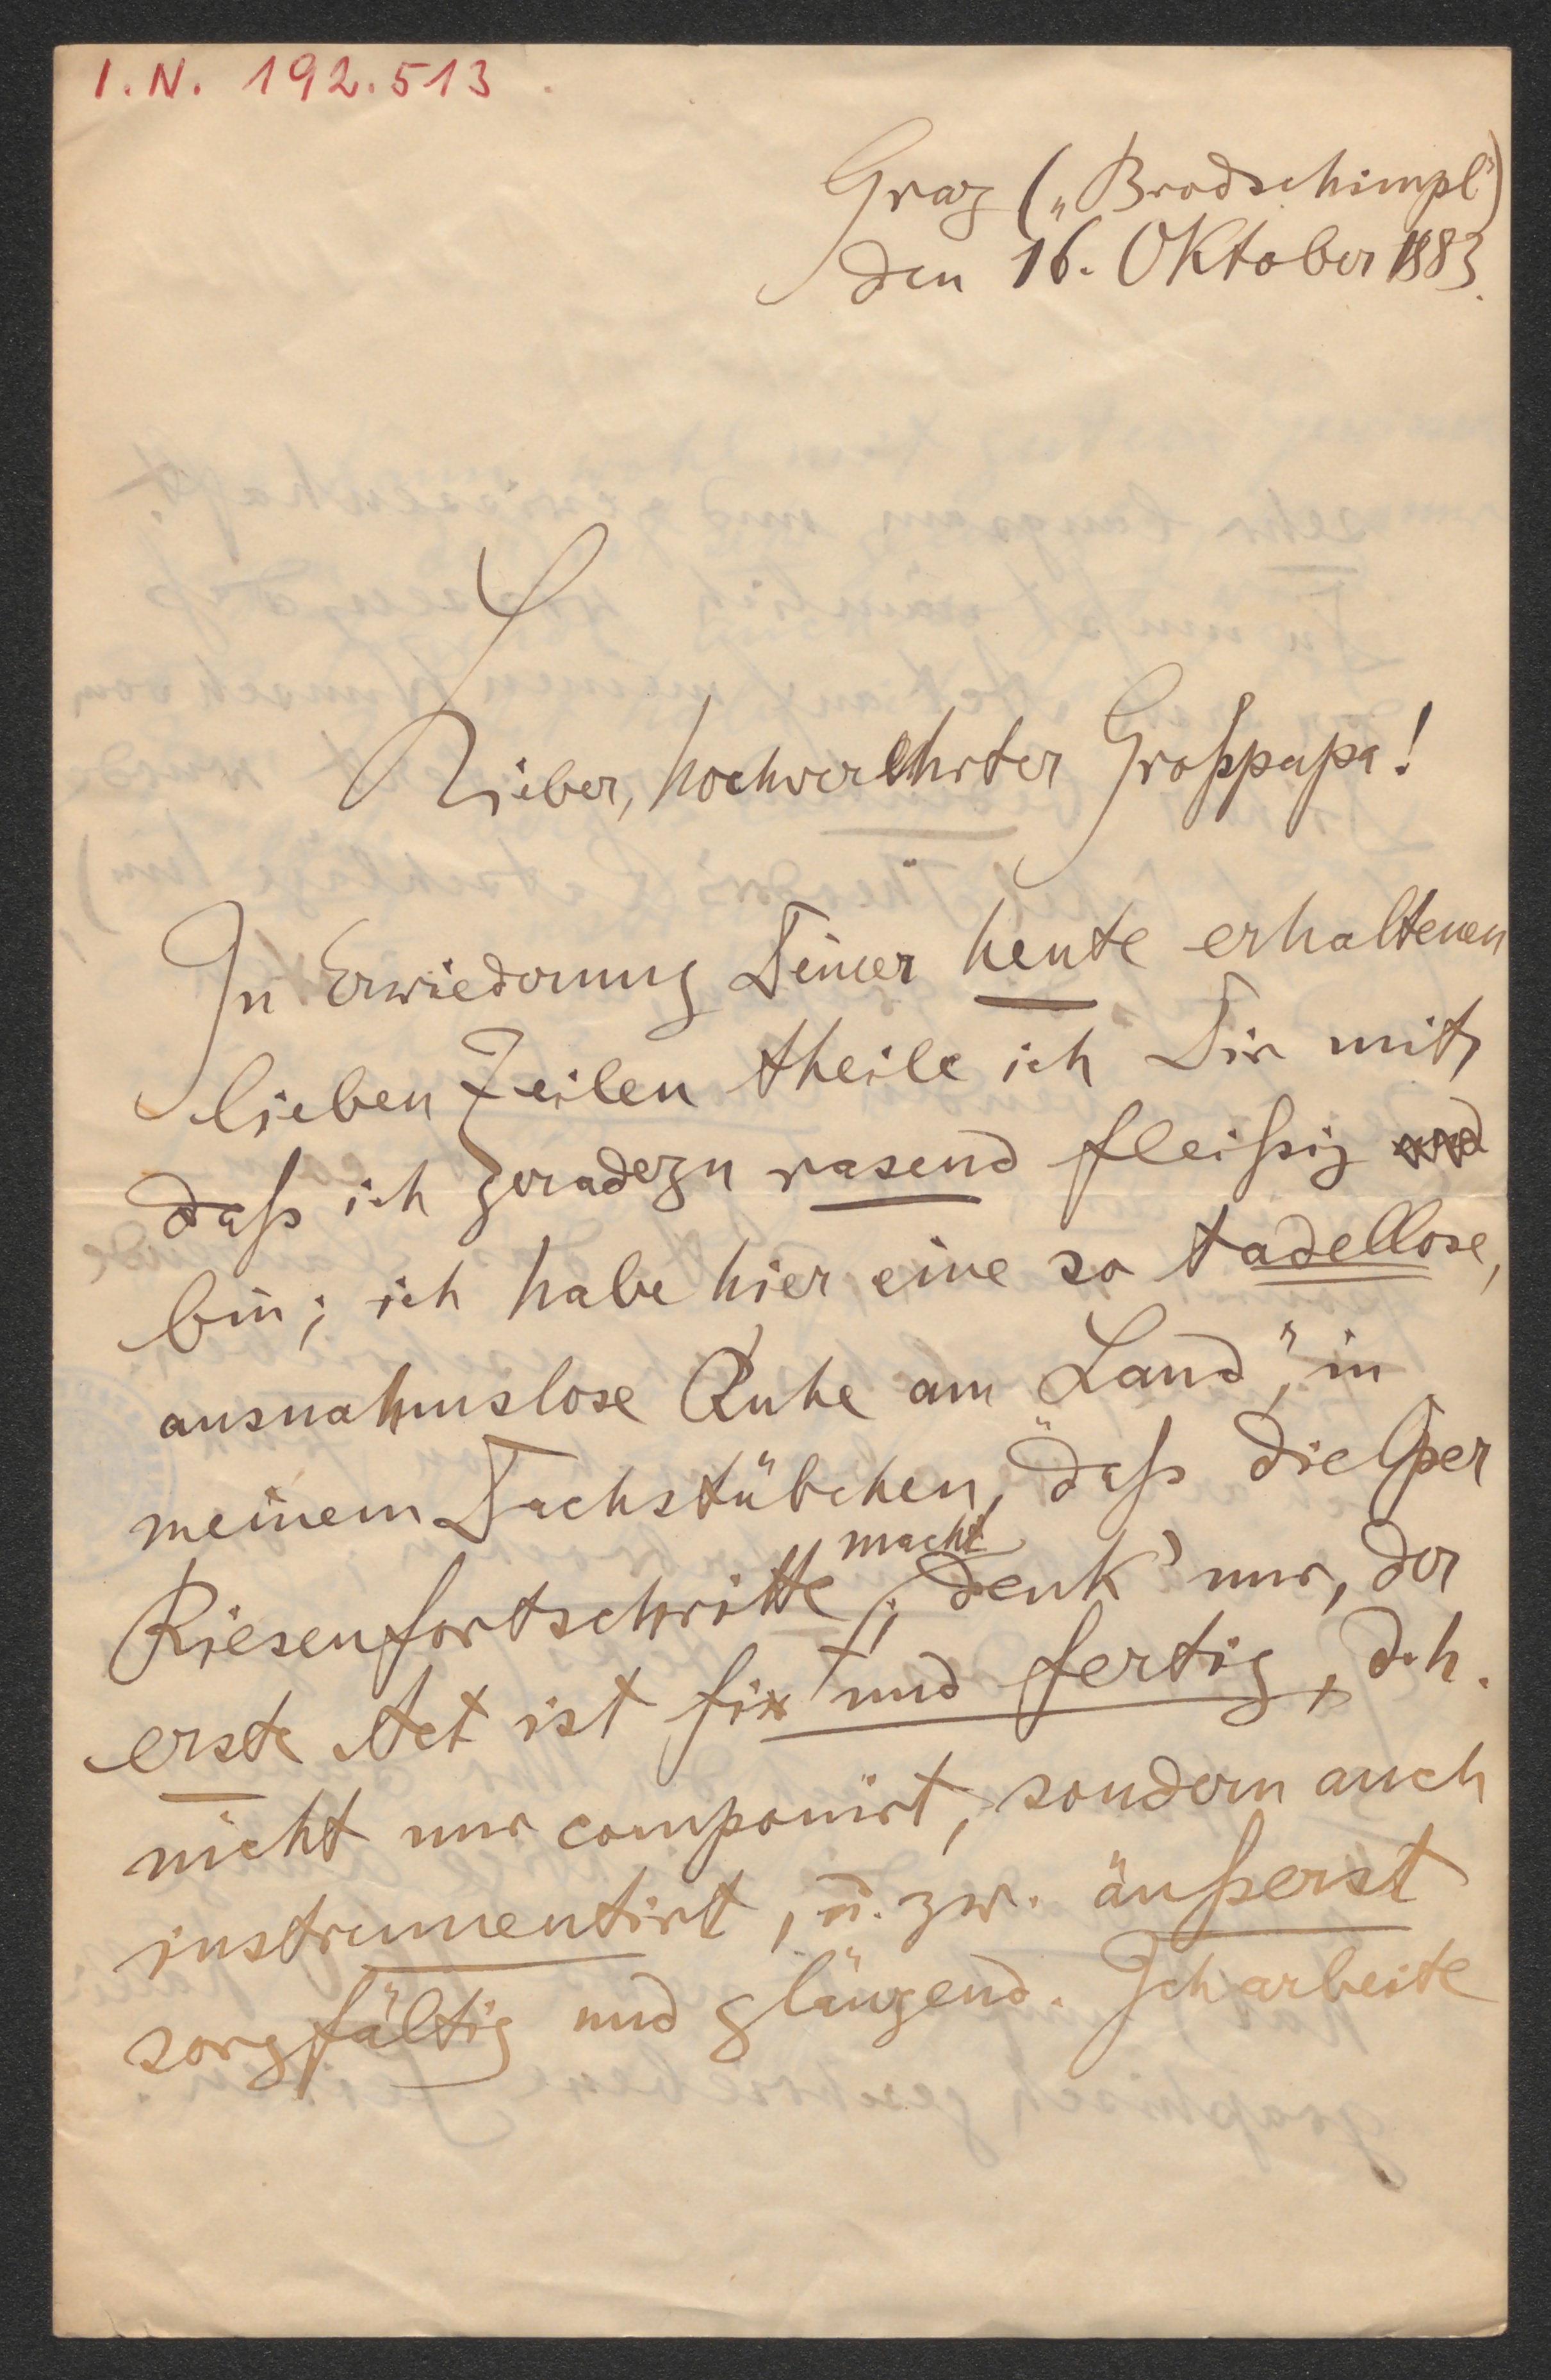 I.N. 192.513
Graz („Brodschimpl“)
den 16. Oktober 1883.
Lieber, hochverehrter Großpapa!
In Erwiederung Deiner heute erhaltenen
lieben Zeilen theile ich Dir mit,
daß ich geradezu rasend fleißig
bin; ich habe hier eine so tadellose,
ausnahmslose Ruhe am „Land“, in
meinem Dachstübchen, daß die Oper
Riesenfortschritte macht; denk' nur, der
erste Act ist fix und fertig, d.h.
nicht nur componirt, sondern auch
instrumentirt, u. zw. äußerst
sorgfältig und glänzend. Ich arbeite